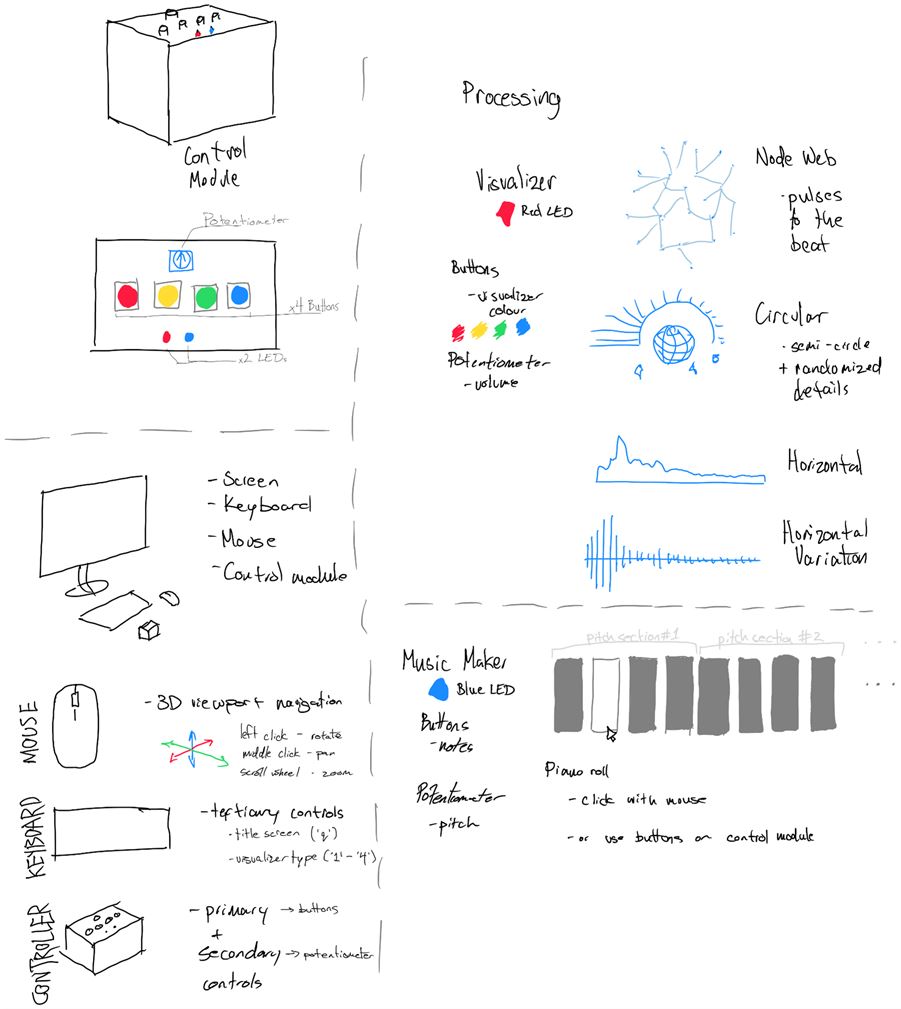 Control
Module
Potentiometer
x4 Buttons
x2 LEDs
- Screen
- Keyboard
- Mouse
- Control module
MOUSE
- 3D viewport navigation
left click - rotate
middle click - pan
scroll wheel - zoom
KEYBOARD
- tertiary controls
- title screen ('q')
- visualizer type ('1' - '4')
CONTROLLER
- primary → buttons
+
secondary → potentiometer
controls
Processing
Visualizer
Red LED
Buttons
- visualizer
colour
Potentiometer
- volume
Node Web
- pulses
to the
beat
Circular
- semi-circle
+ randomized
details
Horizontal
Horizontal
Variation
Music Maker
Blue LED
Buttons
- notes
Potentiometer
- pitch
pitch section #1
pitch section #2
. . .
. . .
Piano roll
- click with mouse
- or use buttons on control module